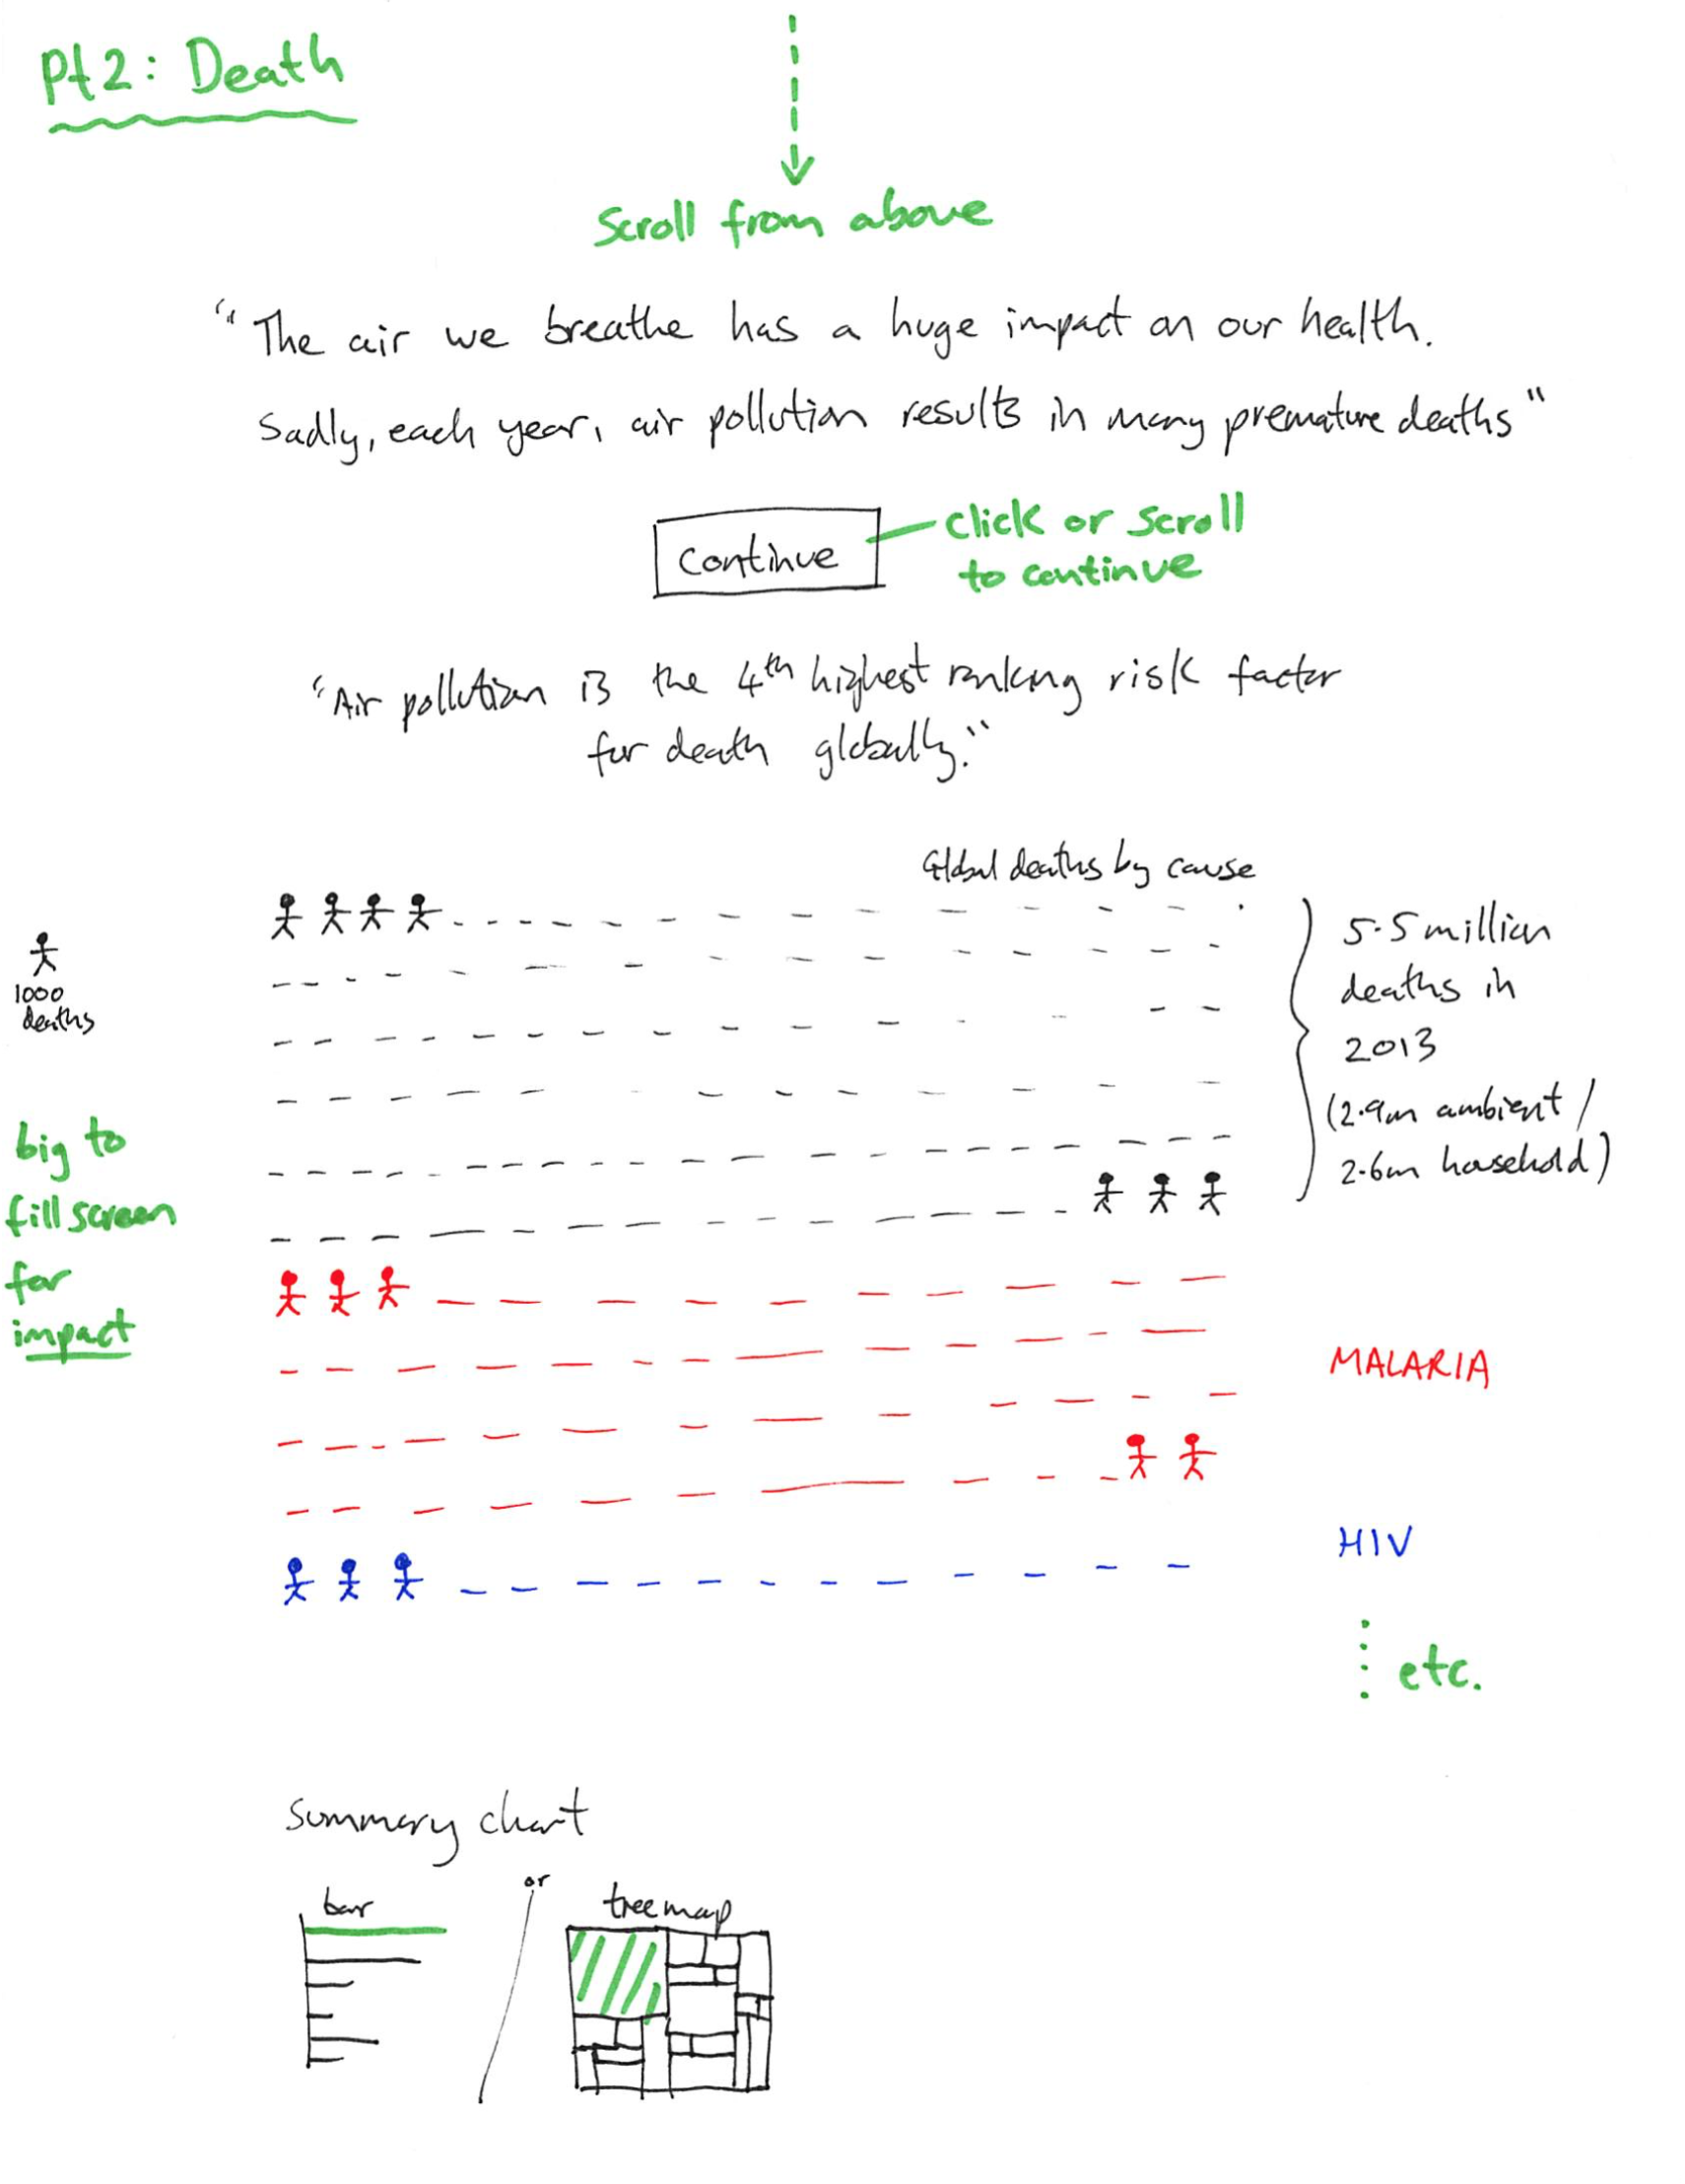 Pt 2: Death
Scroll from above
"The air we breathe has a huge impact on our health.
Sadly, each year, air pollution results in many premature deaths"
Continue
click or scroll
to continue
"Air pollution is the 4th highest ranking risk factor
for death globally."
Global deaths by cause
1000
deaths
5.5 million
deaths in
2013
(2.9m ambient /
2.6m household)
big to
fill screen
for
impact
MALARIA
HIV
etc.
Summary chart
bar
or
treemap